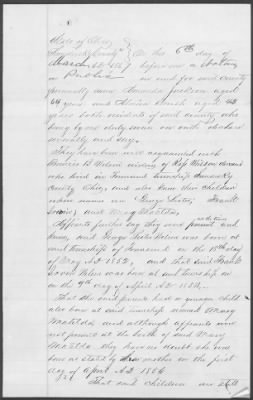 State of Ohio
Sandusky County
On this 6th day of
March A.D. 1886 before me a Notary
Public in and for said county
personally came Amanda Jackson aged
64 years and Almira Smith aged 48
years both residents of said county who
being by me duly sworn on oath
severally and say.
They have been well acquainted with
Wilson, widow of Wilson deceased
who lived in Townsend township Sandusky
County Ohio, and also knew their children
whose names are George Foster, Frank
and Mary Matilda,
Affiants further say they were present and
know, said George Foster Wilson was born at
said township of Townsend on the 18th day
of May A.D. 1852, and that said Frank
Wilson was born at said township on
the 9th day of April A.D. 1854.
That the said parents had a younger child
also born at said township named Mary
Matilda and although affiants were
not present at the birth of said Mary
Matilda they have no doubt she was
born as stated by mother on the first
day of April A.D. 1856
That said children are still